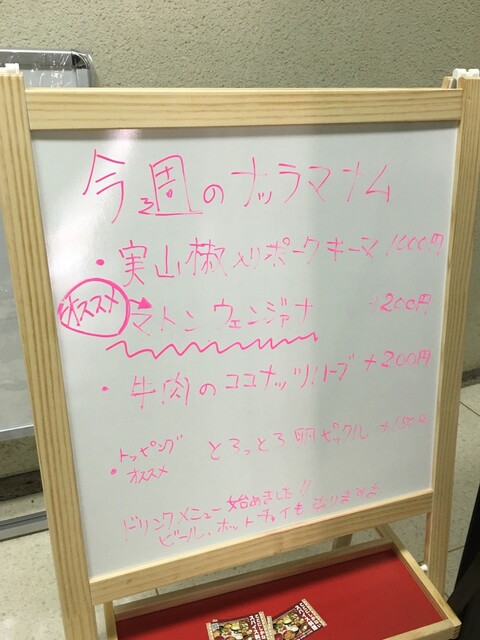 今週のナッラマナム
・実山椒入りポークキーマ 1000円
オススメ
マトンウェンジャナ +200円
・牛肉のココナッツハーブ +200円
トッピング
・オススメ
とろっとろ卵ピックル +150円
ドリンクメニュー始めました!!
ビール、ホットチャイもあります